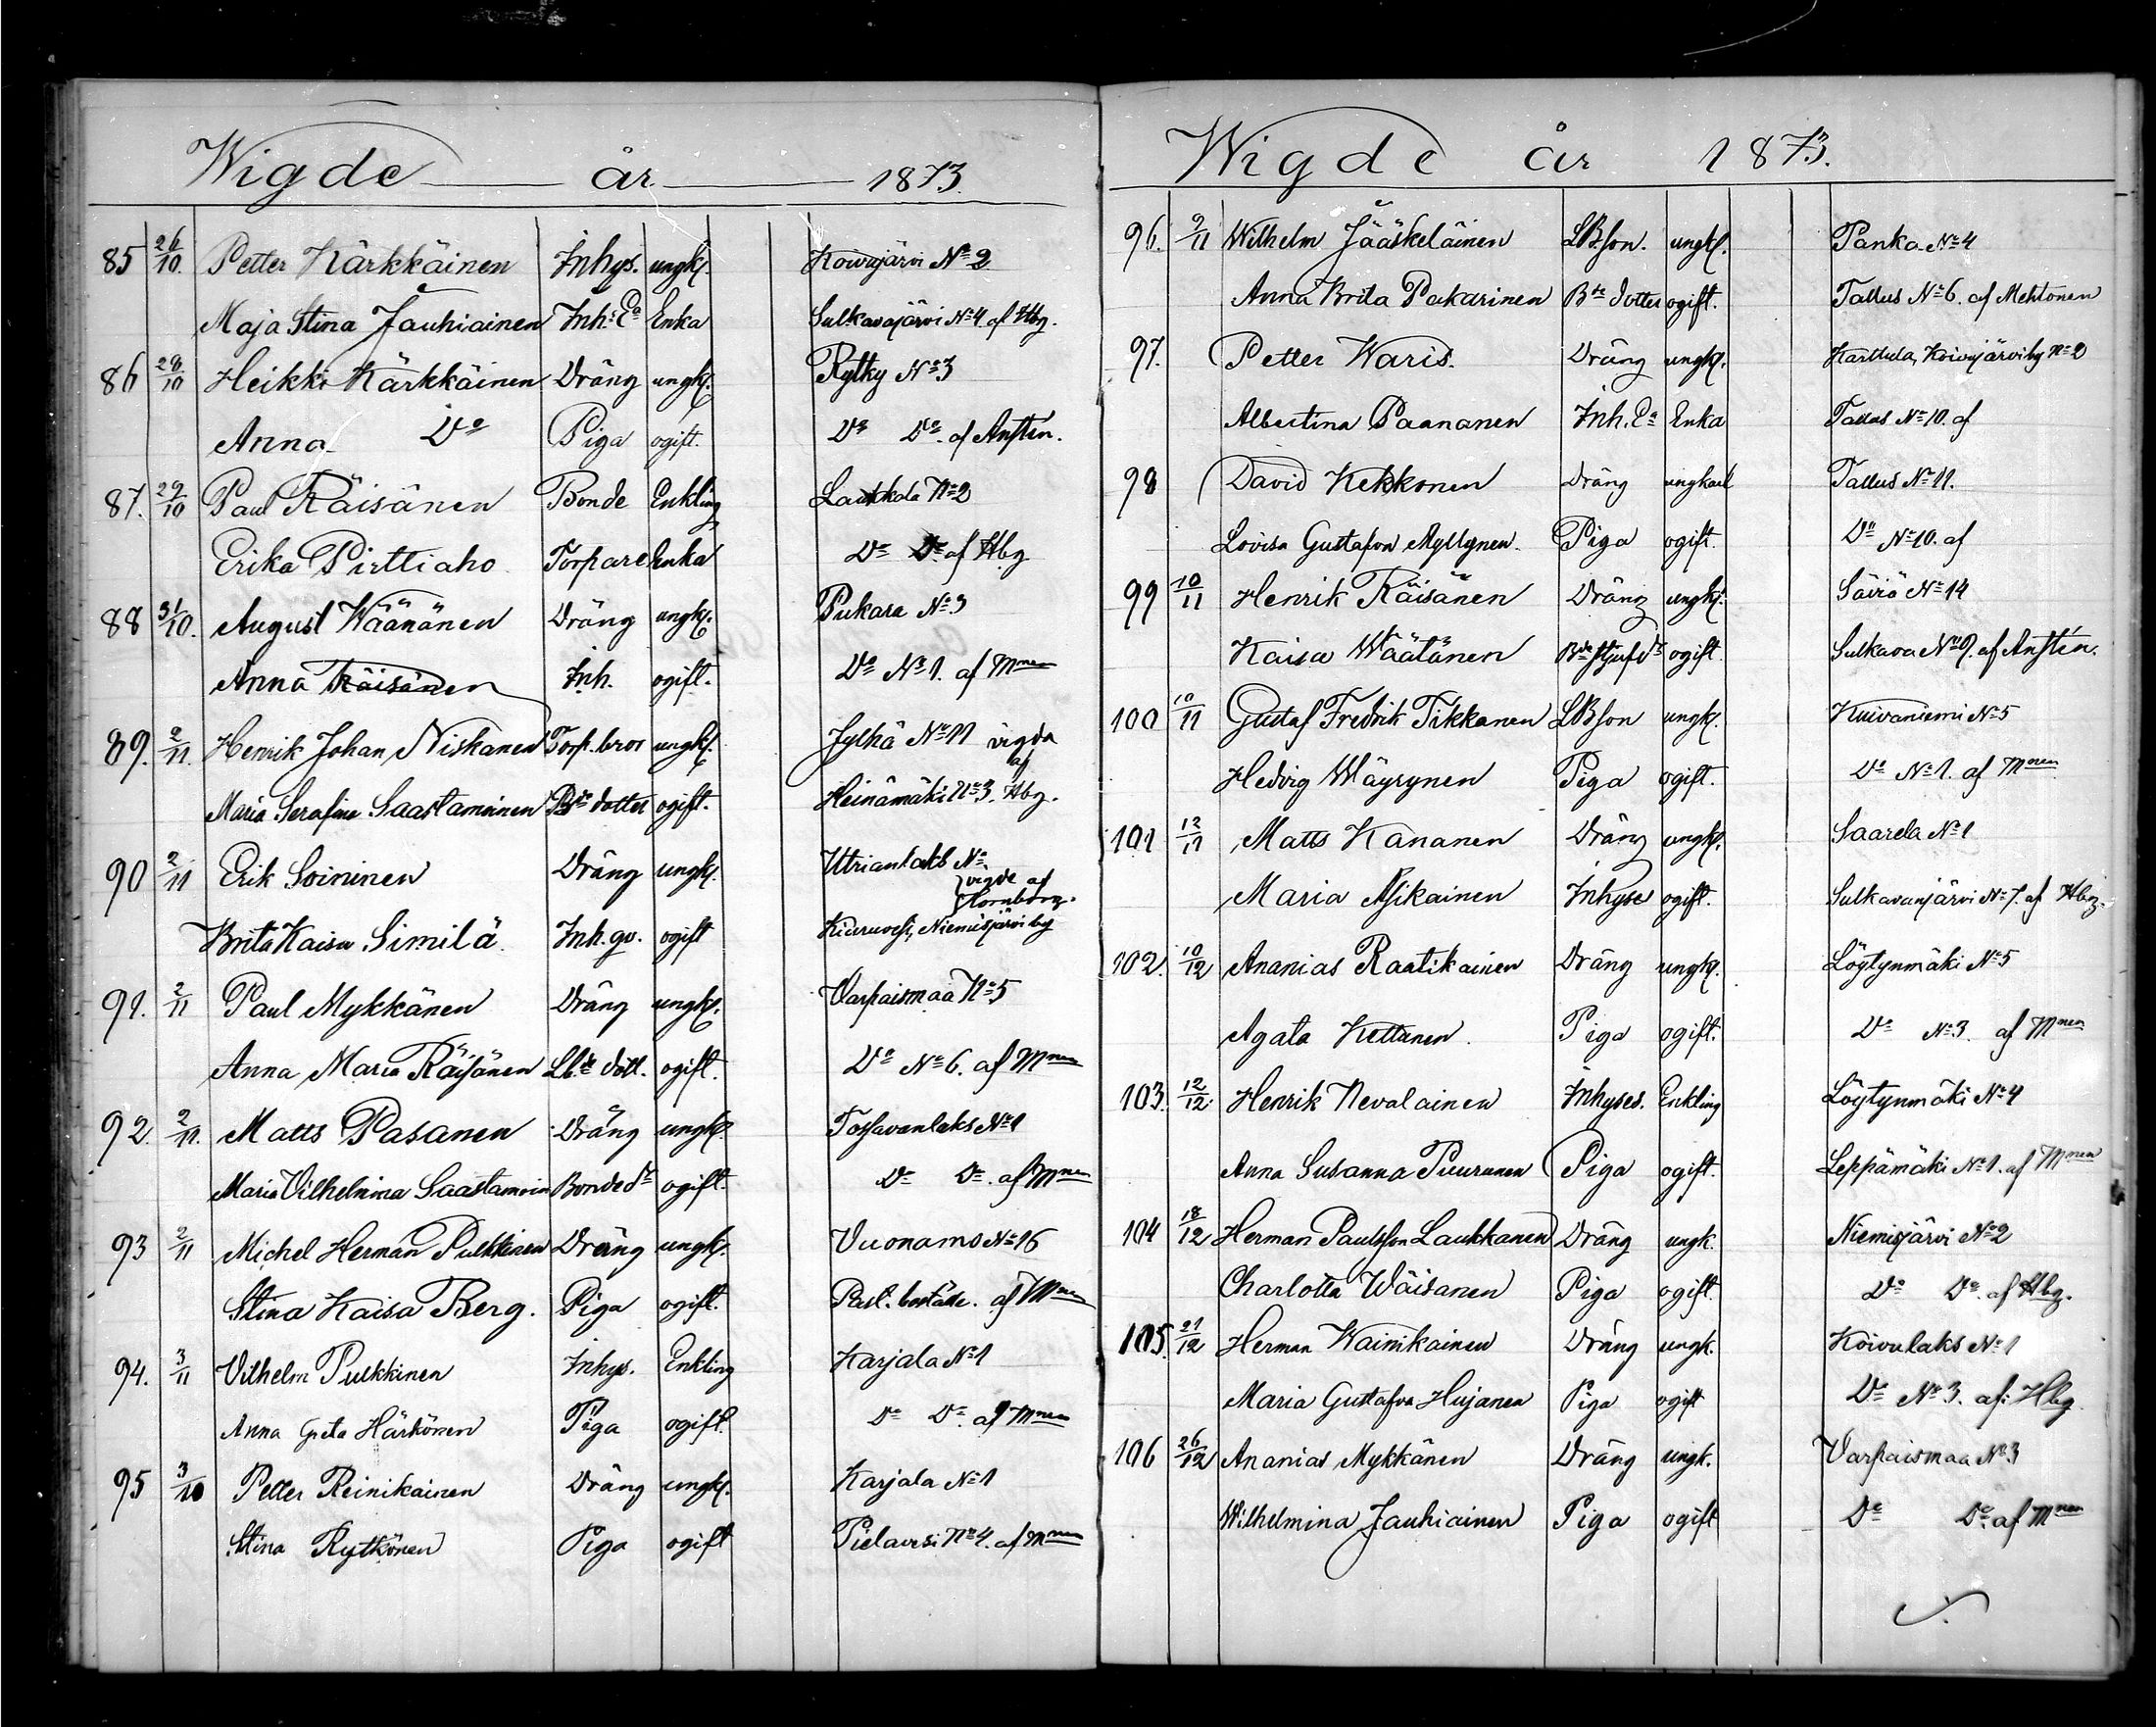 Wigde år 1873.
85 26/10. Petter Kärkkäinen Inhys. ungk. Koivujärvi No 2
Maja Stina Jauhiainen Inh. Ea Enka Sulkavajärvi No 4. af Hbg.
86 28/10 Heikki Kärkkäinen Dräng ungk. Rytky No 3
Anna Do Piga ogift. Do Do. af Anstén.
87. 29/10 Paul Räisänen Bonde Enkling Laukkala No 2
Erika Pirttiaho Torpare Enka Do Do. af Hbg
88 31/10. August Wäänänen Dräng ungk. Pukara No 3
Anna Räisänen Inh. ogift. Do No 1. af Mnen
89. 2/11. Henrik Johan Niskanen Torp. bror ungk. Jylhä No 11 vigda af
Maria Serafina Saastamoinen Bde dotter ogift. Heinämäki No 3. Hbg.
90 2/11 Erik Soininen Dräng ungk. Utrianlaks No vigde af
Hornborg.
Brita Kaisa Similä Inh. qv. ogift Kiuruvesi, Niemisjärvi by
91. 2/11 Paul Mykkänen Dräng ungk. Varpaismaa No 5
Anna Maria Räisänen Lbde dott. ogift. Do No 6. af Mnen
92. 2/11. Matts Pasanen Dräng ungk. Tossavanlaks No 1
Maria Vilhelmina Saastamoin Bonde dr ogift. Do Do. af Mnen
93 2/11 Michel Herman Pulkkinen Dräng ungk. Vuonamo No 16
Stina Kaisa Berg. Piga ogift. Past. boställe. af Mnen
94. 3/11 Vilhelm Pulkkinen Inhys. Enkling Karjala No 1
Anna Greta Härkönen Piga ogift. Do Do. af Mnen
95 3/10 Petter Reinikainen Dräng ungk. Karjala No 1
Stina Rytkönen Piga ogift Pielavesi No 4. af Mnen
Wigde år 1873.
96. 9/11 Wilhelm Jääskeläinen LBson. ungk. Panka No 4
Anna Brita Pakarinen Bde dotter ogift. Tallus No 6. af Mehtonen
97. Petter Waris. Dräng ungk. Karttula, Koivujärvi by No 2
Albertina Paananen Inh. Ea Enka Tallus No 10. af
98 David Kekkonen Dräng ungkarl Tallus No 11.
Lovisa Gustafva Myllynen. Piga ogift. Do No 10. af
99 10/11 Henrik Räisänen Dräng ungk. Säviä No 14
Kaisa Wäätänen Bde styfdr ogift Sulkava No 9. af Anstén.
100 10/11 Gustaf Fredrik Tikkanen LBson ungk. Kuivaniemi No 5
Hedvig Wäyrynen Piga ogift. Do No 1. af Mnen
101 12/11 Matts Kananen Dräng ungk. Saarela No 1
Maria Asikainen Inhyse ogift. Sulkavanjärvi No 7. af Hbg.
102. 10/12 Ananias Raatikainen Dräng ungk. Löytynmäki No 5
Agata Kettunen. Piga ogift. Do No 3. af Mnen
103. 12/12. Henrik Nevalainen Inhyses. Enkling Löytynmäki No 4
Anna Susanna Puurunen Piga ogift. Leppämäki No 1. af Mnen
104 18/12 Herman Paulsson Laukkanen Dräng ungk. Niemisjärvi No 2
Charlotta Wäisänen Piga ogift. Do Do. af Hbg.
105. 21/12 Herman Wainikainen Dräng ungk. Koivulaks No 1
Maria Gustafva Hujanen Piga ogift Do No 3. af: Hbg
106 26/12 Ananias Mykkänen Dräng ungk. Varpaismaa No 3
Wilhelmina Jauhiainen Piga ogift Do Do. af Mnen